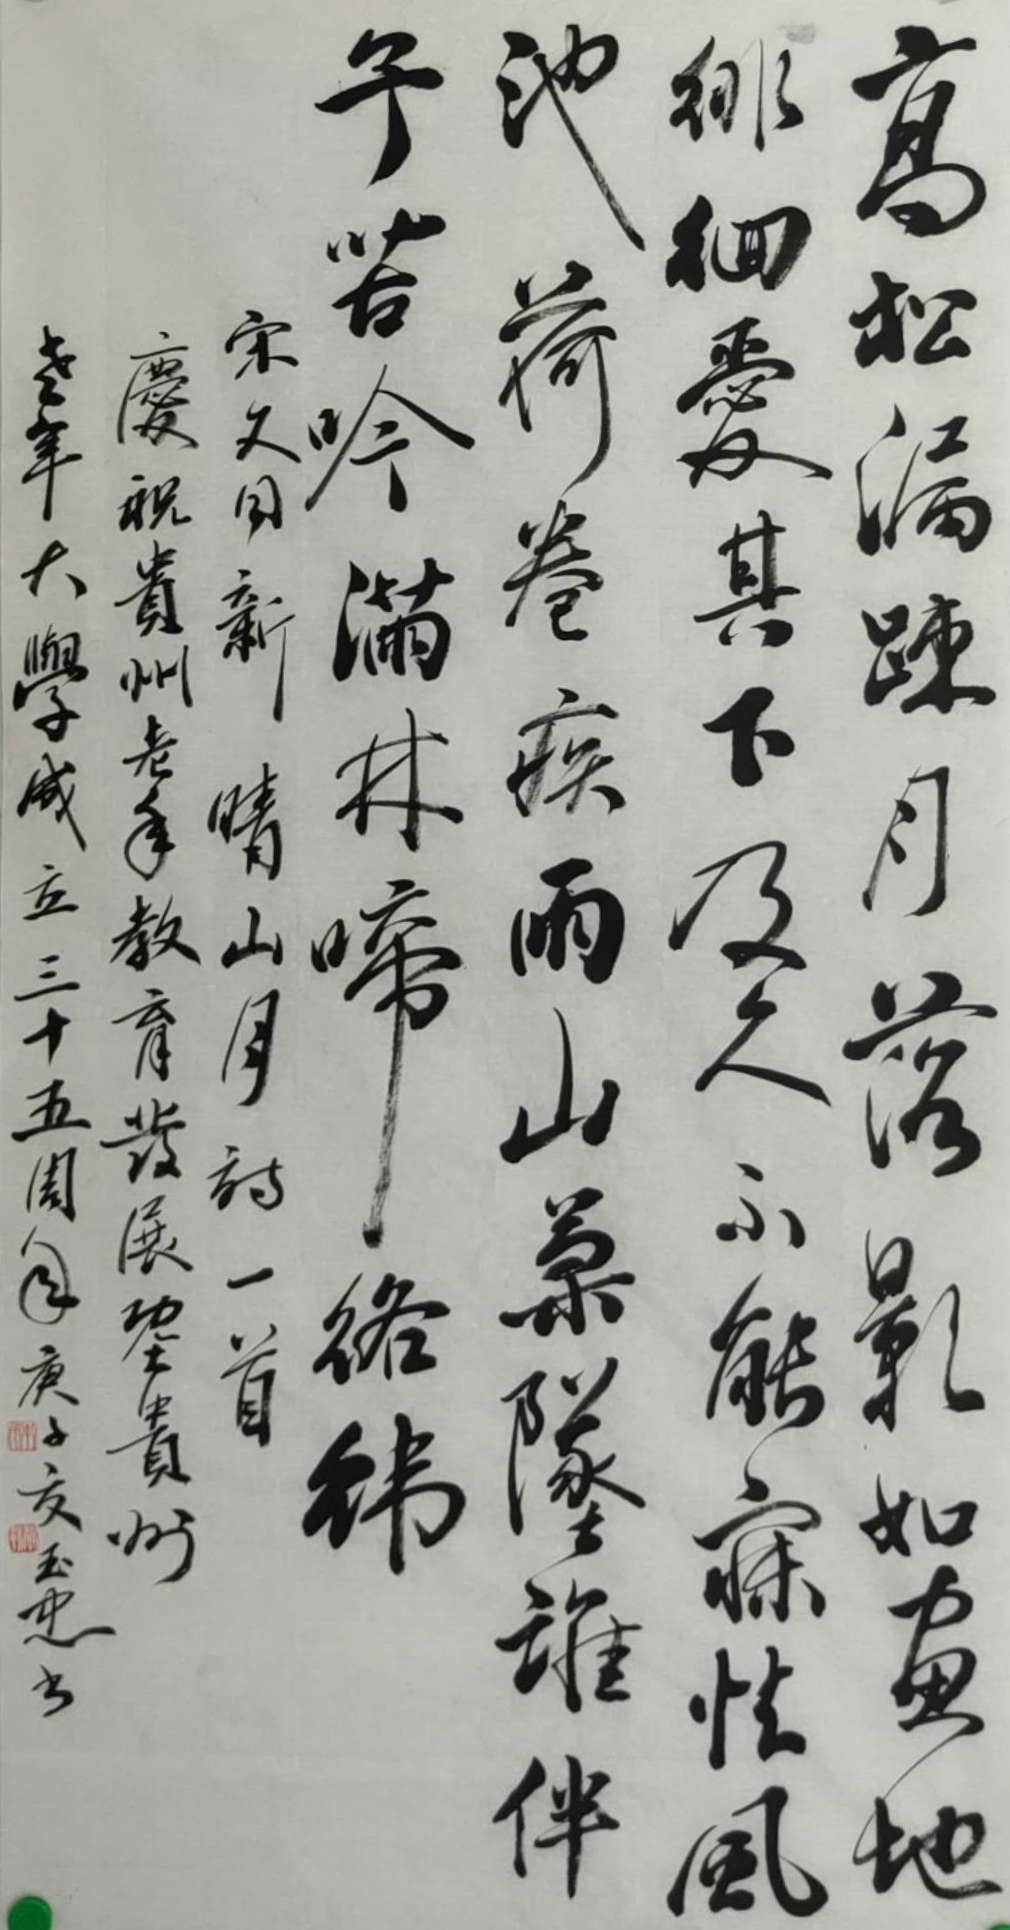 高松漏踈月落影如畫地
徘徊愛其下及久不能寐怯風
池荷卷疾雨山菓墜誰伴
予苦吟滿林啼絡緯
宋文同新晴山月詩一首
慶祝貴州老年教育發展暨貴州
老年大學成立三十五周年庚子夏玉忠书